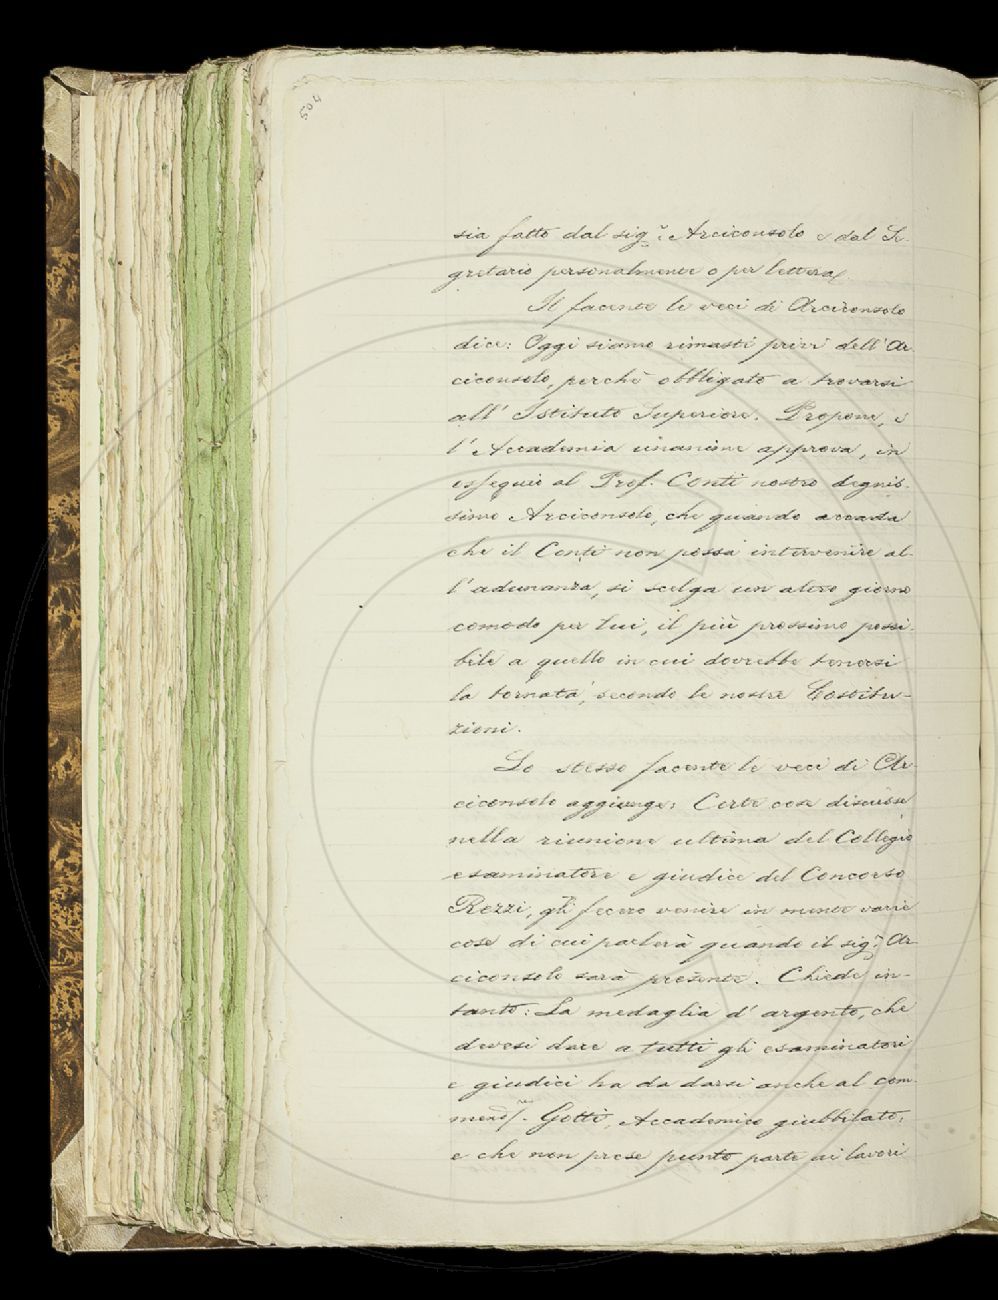 504
sia fatto dal sig.r Arciconsolo e dal Se-
gretario personalmente o per lettera.
Il facente le veci di Arciconsolo
dice: Oggi siamo rimasti privi dell'Ar-
ciconsolo, perchè obbligato a trovarsi
all' Istituto Superiore. Propone, e
l' Accademia unanime approva, in
ossequio al Prof. Conti nostro degnis-
simo Arciconsolo, che quando accada
che il Conti non possa intervenire al-
l'adunanza, si scelga un altro giorno
comodo per lui, il più prossimo possi-
bile a quello in cui dovrebbe tenersi
la tornata, secondo le nostre Costitu-
zioni.
Lo stesso facente le veci di Ar-
ciconsolo aggiunge: Certe cose discusse
nella riunione ultima del Collegio
esaminatore e giudice del Concorso
Rezzi, gli fecero venire in mente varie
cose di cui parlerà quando il sig.r Ar-
ciconsolo sarà presente. Chiede in-
tanto: La medaglia d' argento, che
devesi dare a tutti gli esaminatori
e giudici ha da darsi anche al com-
mend.r Gotti, Accademico giubbilato,
e che non prese punto parte ai lavori